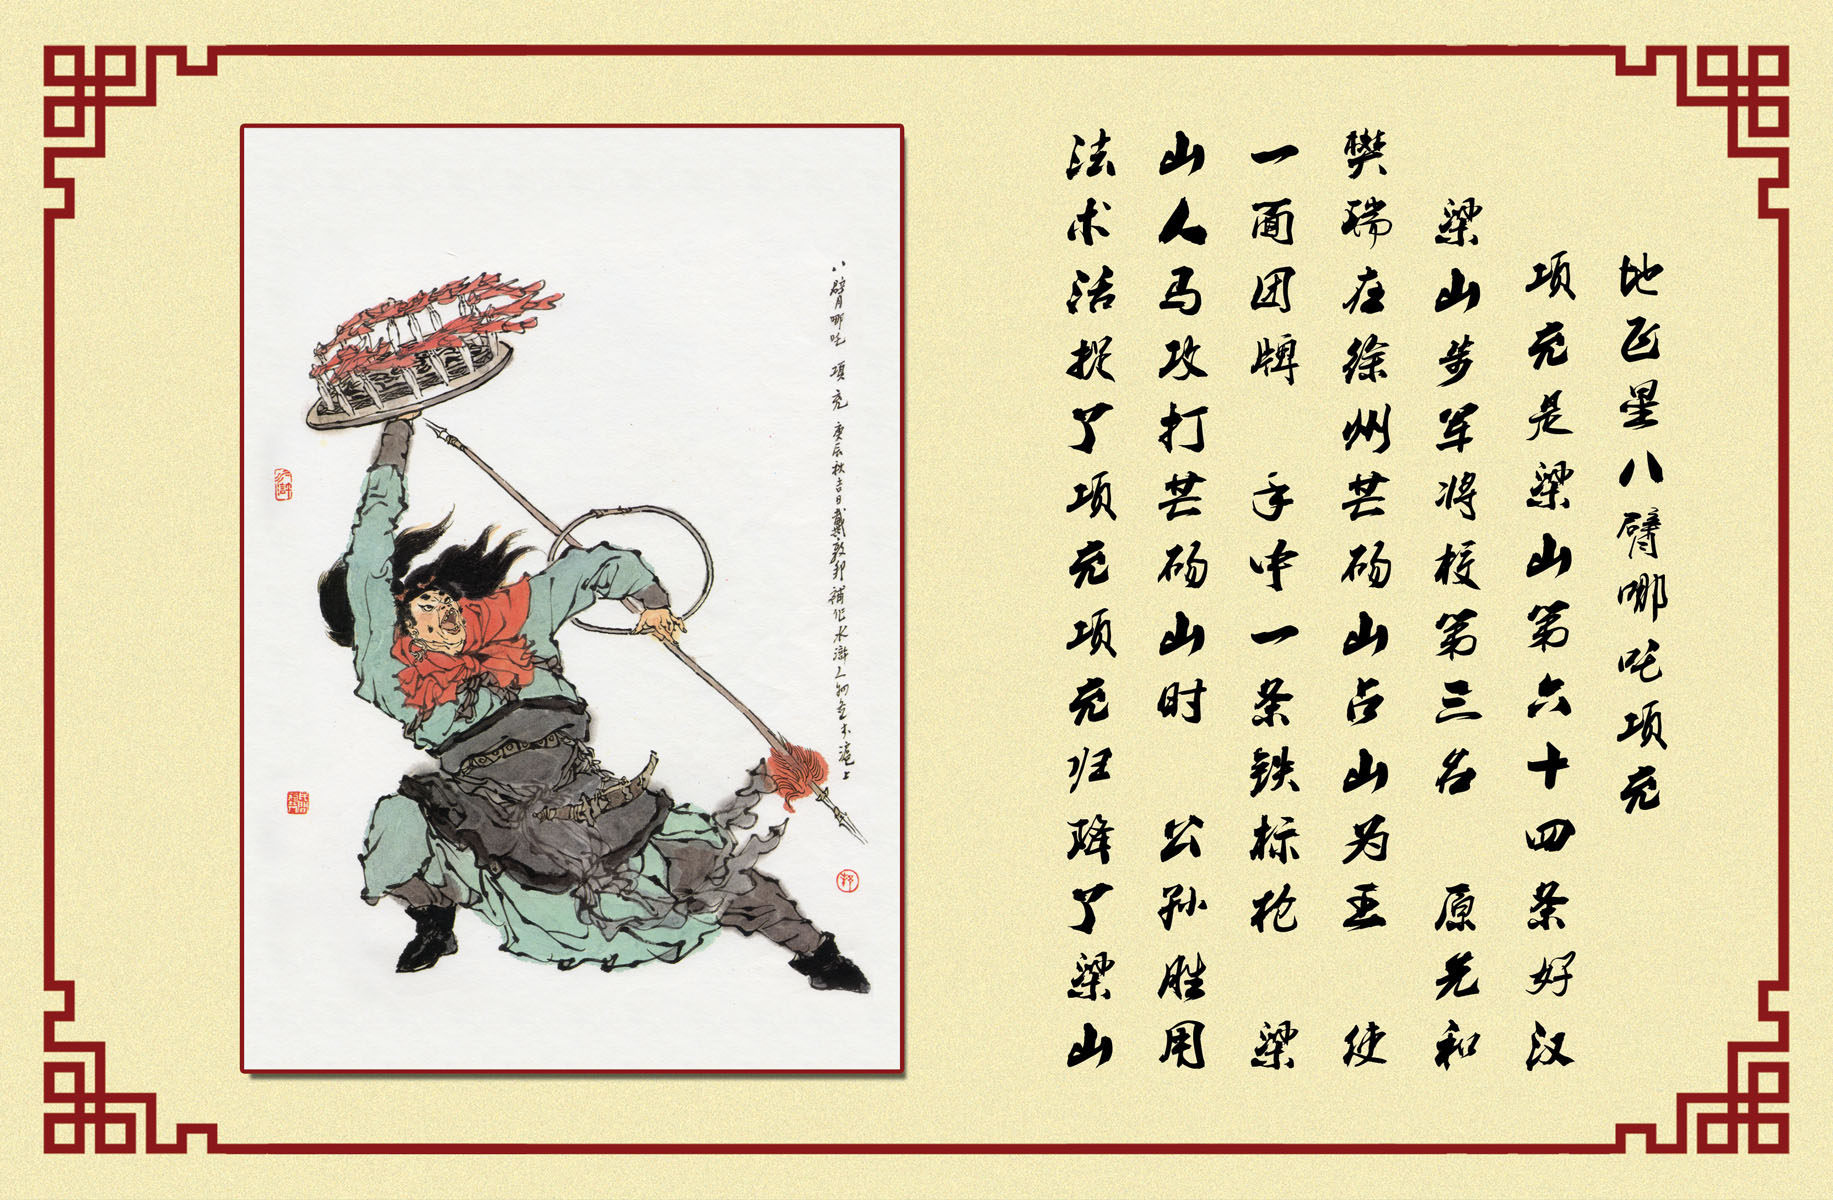 地飞星八臂哪吒项充
项充是梁山第六十四条好汉
梁山步军将校第三名 原先和
樊瑞在徐州芒砀山占山为王 使
一面团牌 手中一条铁标枪 梁
山人马攻打芒砀山时 公孙胜用
法术活捉了项充项充归降了梁山
八臂哪吒 項充 庚辰秋吉日戴敦邦補作水滸人物全本滬上
邦